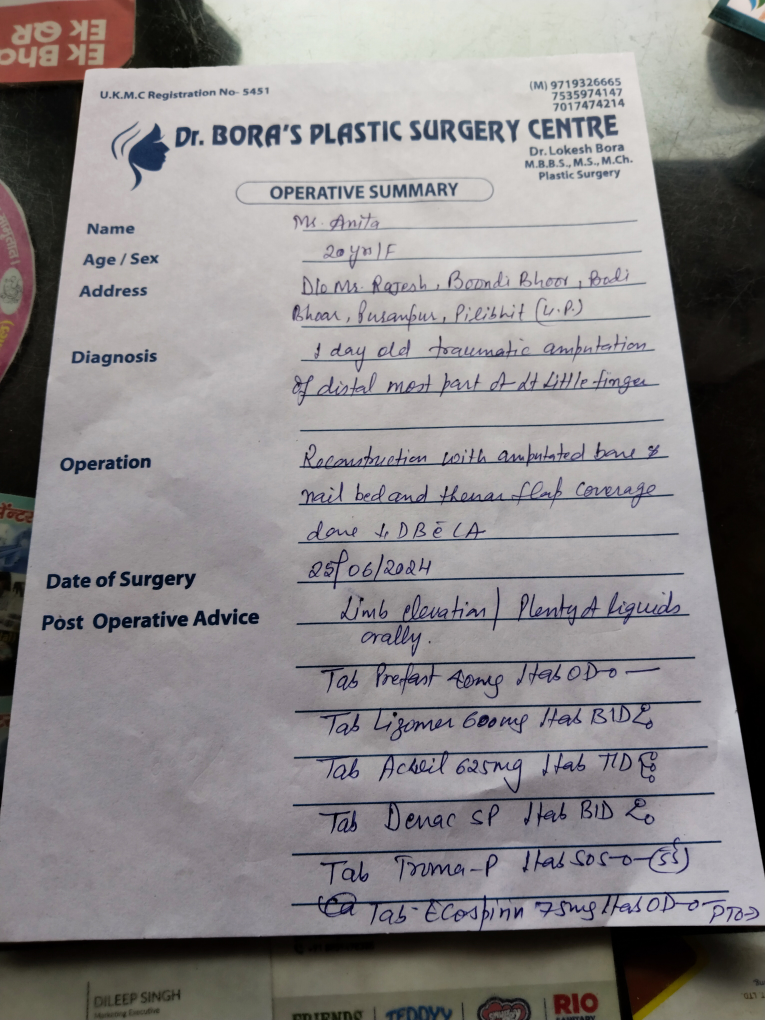 EK QR
EK Bho
U.K.M.C Registration No- 5451
(M) 9719326665
7535974147
7017474214
Dr. BORA'S PLASTIC SURGERY CENTRE
Dr. Lokesh Bora
M.B.B.S., M.S., M.Ch.
Plastic Surgery
OPERATIVE SUMMARY
Name Ms. Anita
Age / Sex 20 yr/F
Address D/o Mr. Rajesh, Boondi Bhoor, Bodi
Bhoor, Puranpur, Pilibhit (U.P.)
Diagnosis 1 day old traumatic amputation
of distal most part of Lt Little finger
Operation Reconstruction with amputated bone &
nail bed and thenar flap coverage
done
Date of Surgery 25/06/2024
Post Operative Advice Limb elevation / Plenty of liquids
orally.
Tab 40mg 1tab OD-o-
Tab Lizomer 600mg 1tab BID
Tab 625mg 1tab TID
Tab Denac SP 1tab BID
Tab Troma-P 1tab SOS-o-
Tab-Ecosprin 75mg 1tab OD-o-
PTO→
DILEEP SINGH
Marketing Executive
FRIENDS
TEDDYY
RIO